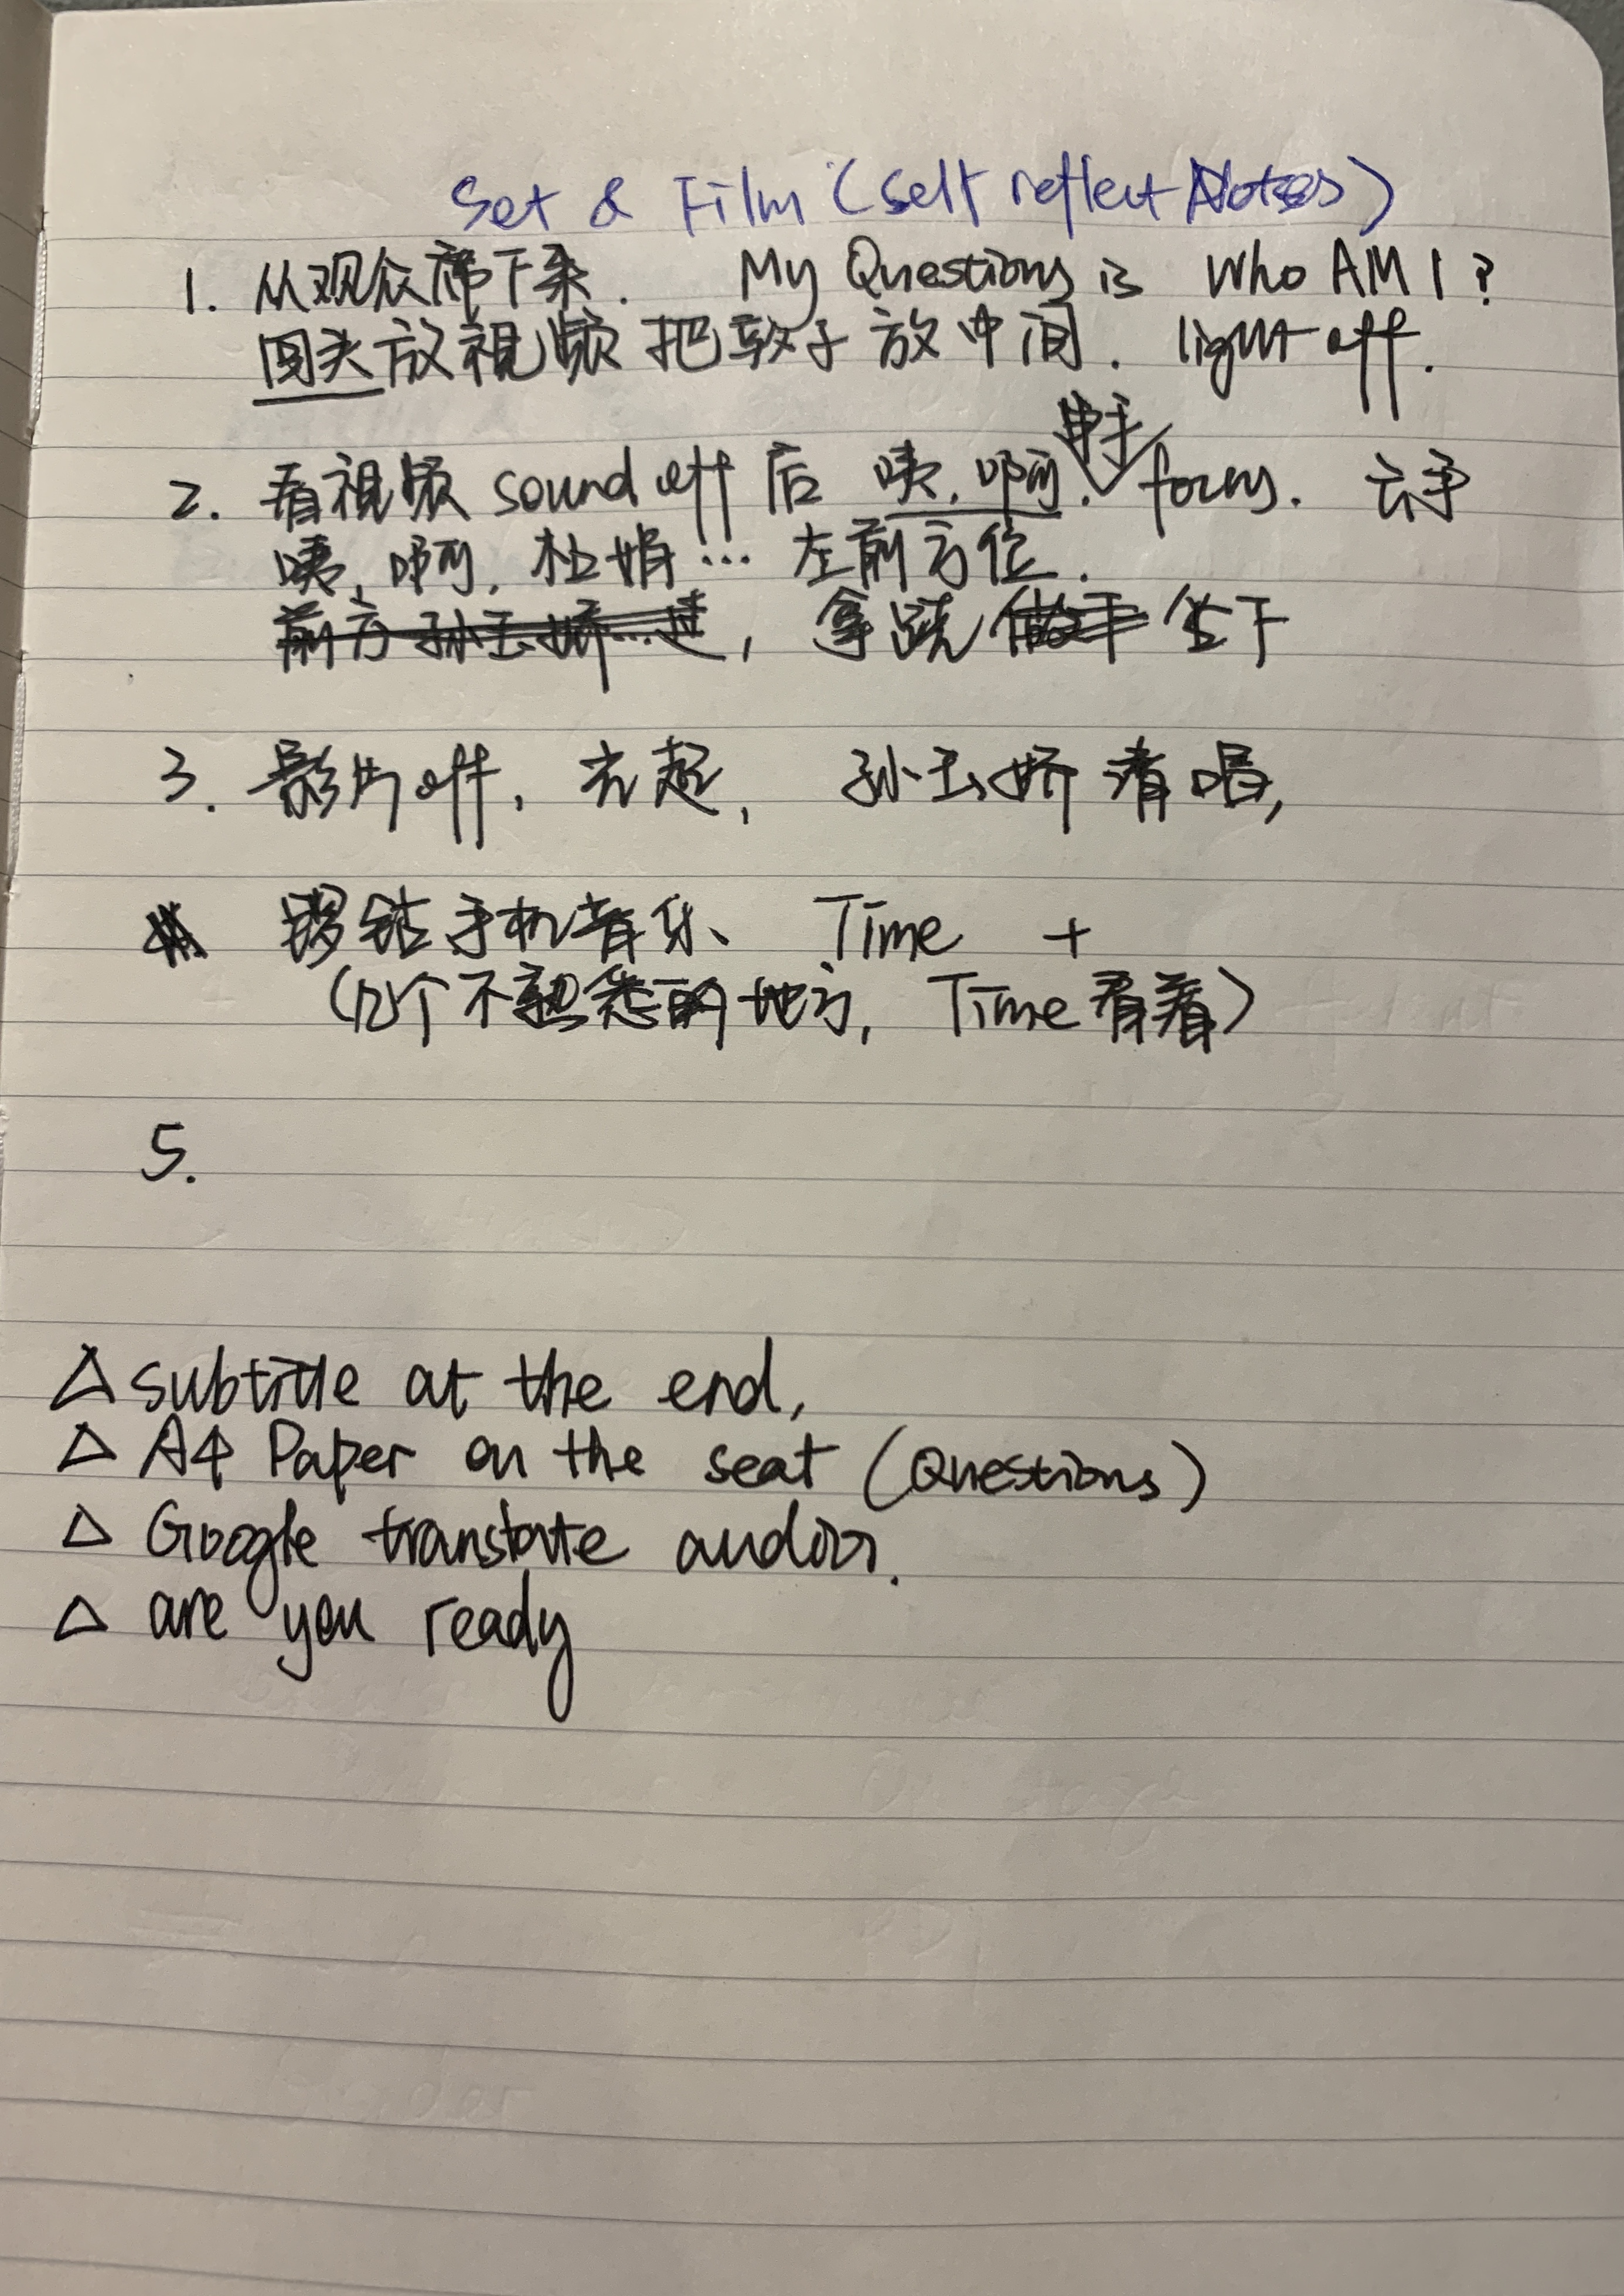 Set & Film (self reflect Notes)
1. 从观众席下来. My Questions is Who AM I?
回头放视频 把鞋子放中间. light off.
2. 看视频 sound off 后 咦, 啊. focus. 云手
咦, 啊, 杜娟... 左前方位.
前方 孙玉娇...过, 拿跷 做手 坐下
3. 影片off, 光起, 孙玉娇 清唱,
锣钹手机音乐、 Time +
(几个不熟悉的地方, Time看着)
5.
△ subtitle at the end,
△ A4 Paper on the seat (Questions)
△ Google translate
△ are you ready